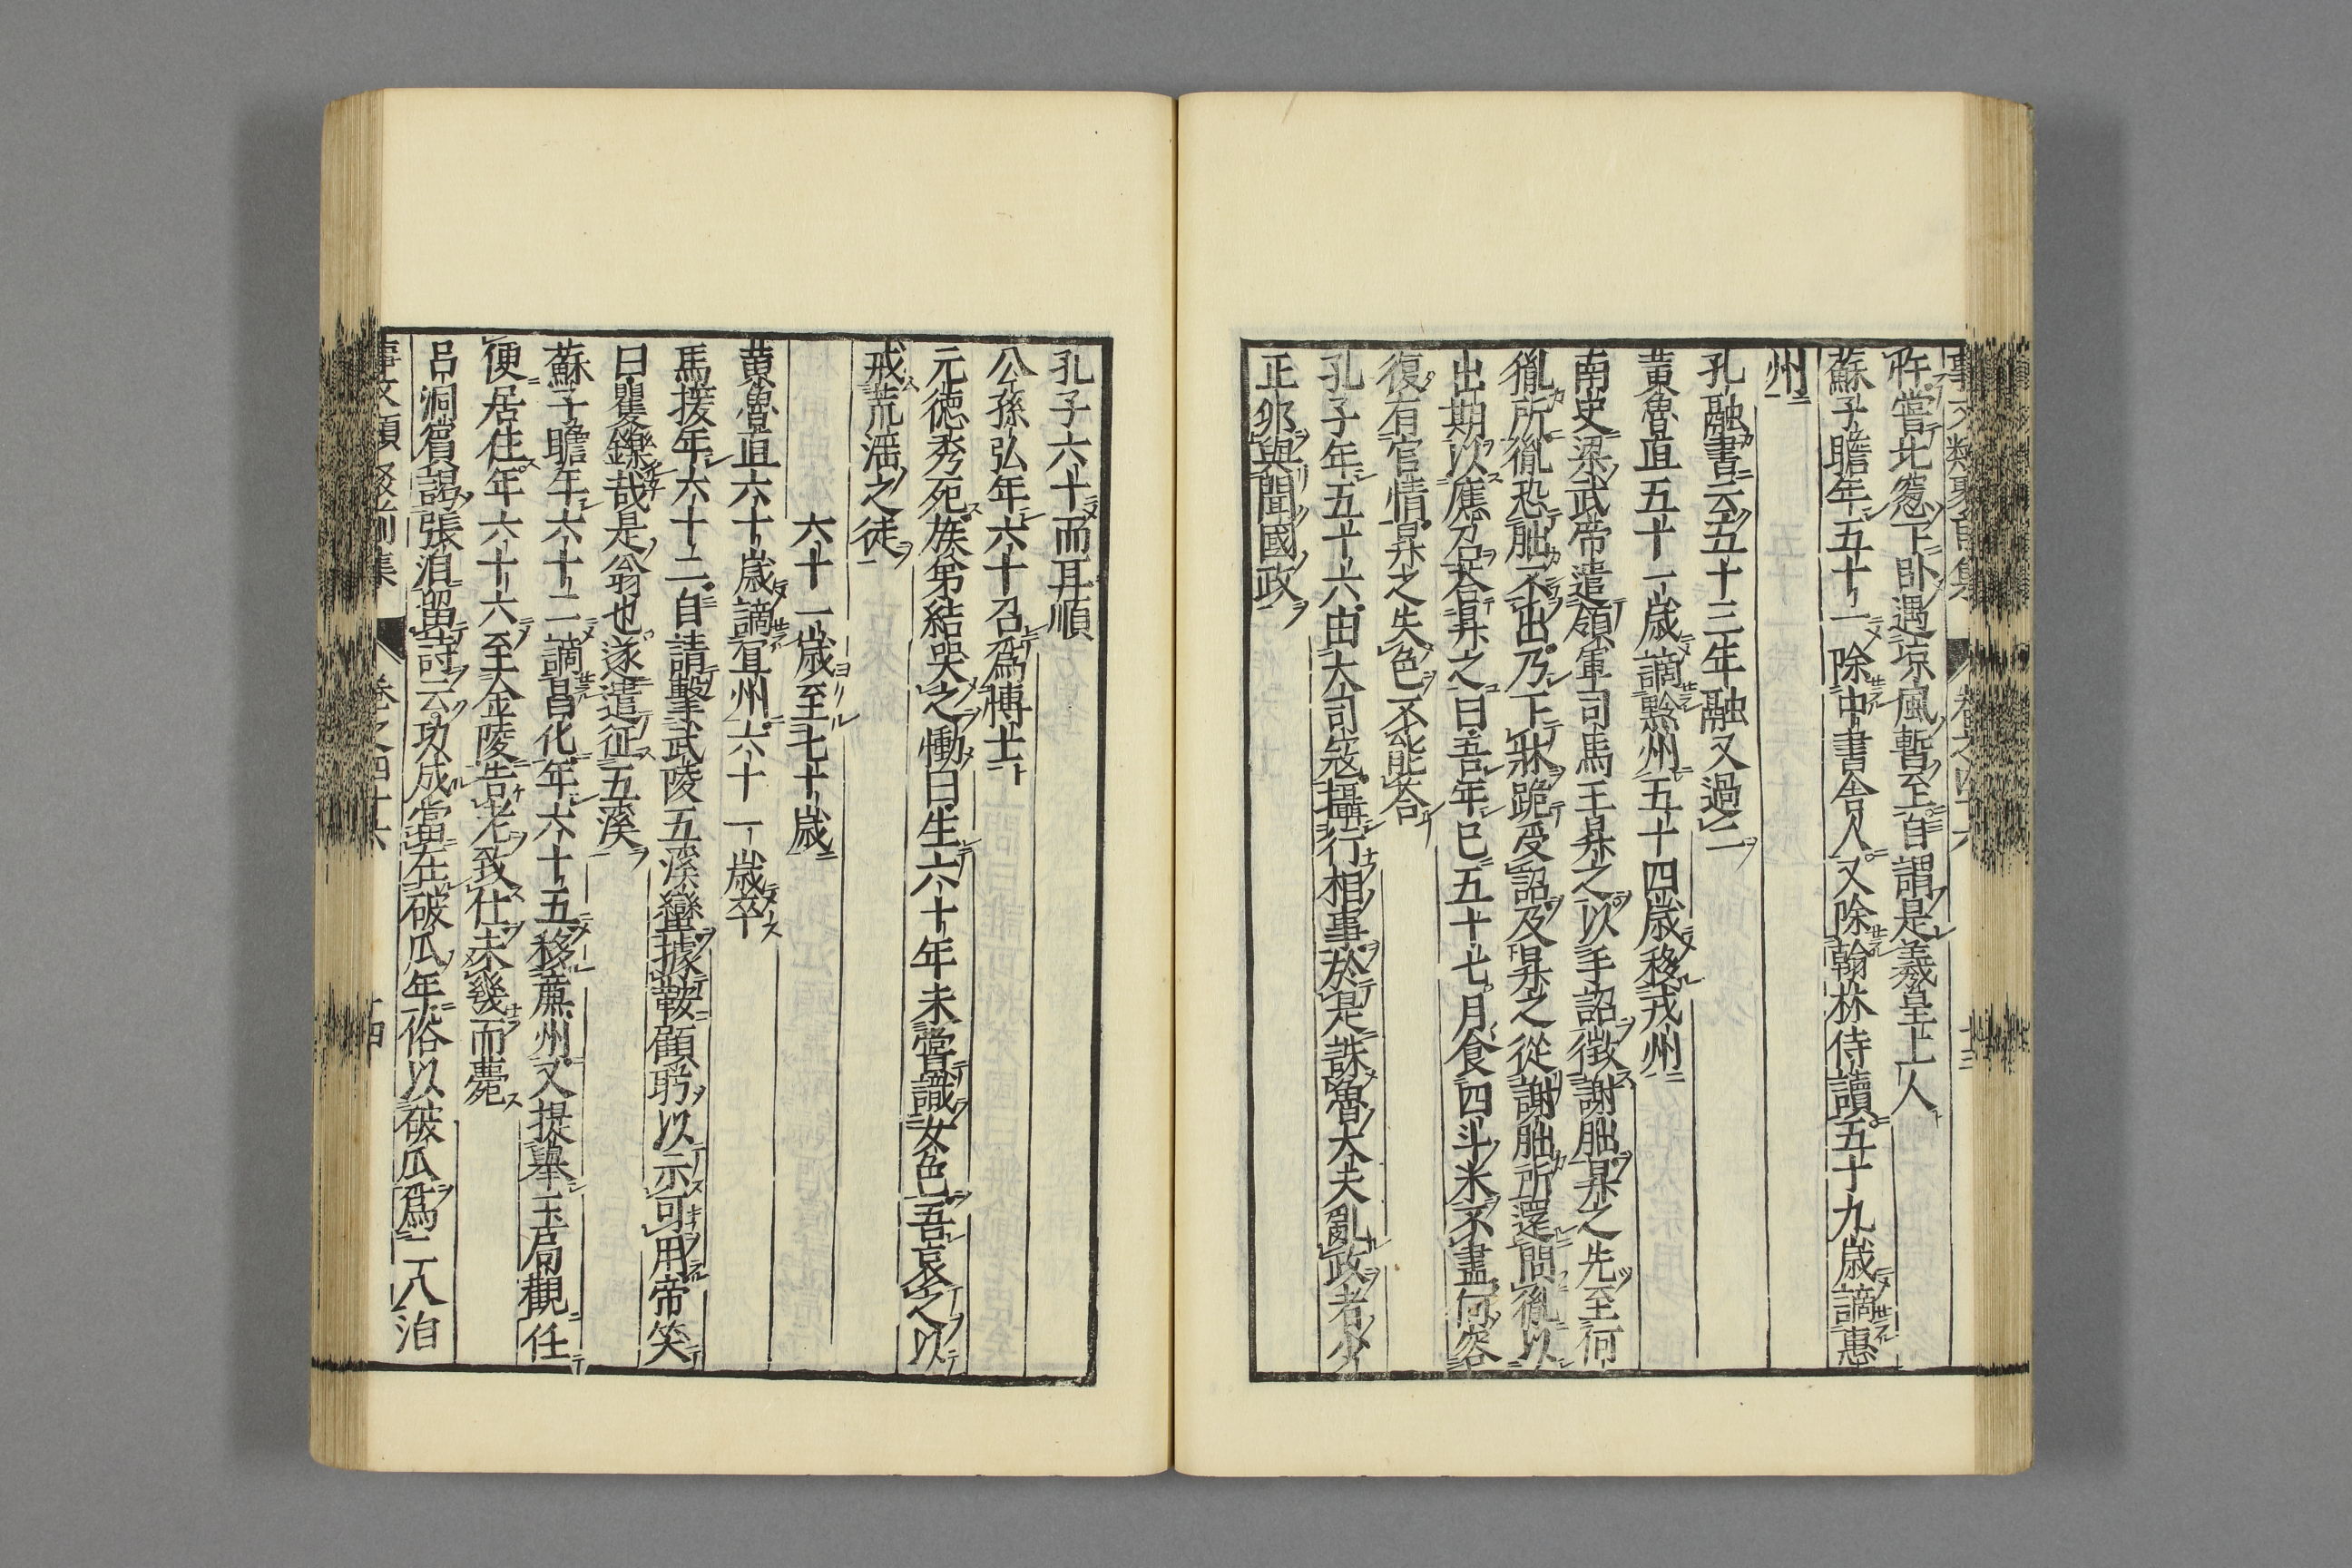 事文類聚前集 卷之四十六 十三
許嘗北窓下卧遇涼風暫至自謂是羲皇上人
蘇子瞻年五十一除中書舍人又除翰林侍讀五十九歳謫惠
州
孔融書云五十三年融又過二
黄魯直五十一歳謫黔州五十四歳移戎州
南史梁武帝遣領軍司馬王杲之以手詔徴謝朏杲之先至何
胤所胤恐朏不出乃下牀跪受詔及杲之從謝朏所還問胤以
出期以應召荅杲之曰吾年已五十七月食四斗米不盡何容
復有官情杲之失色不能荅
孔子年五十六由大司寇攝行相事於是誅魯大夫亂政者少
正卯與聞國政
孔子六十而耳順
公孫弘年六十召為博士
元徳秀死族弟結哭之慟曰生六十年未嘗識女色吾哀之以
戒荒滛之徒
六十一歳至七十歳
黄魯直六十歳謫宜州六十一歳卒
馬援年六十二自請擊武陵五溪蠻據鞍顧眄以示可用帝笑
曰矍鑠哉是翁也遂遣征五溪
蘇子瞻年六十二謫昌化年六十五移廉州又提舉玉局觀任
便居住年六十六至金陵告老致仕未幾而薨
呂洞賓謁張洎留詩云功成當在破瓜年俗以破瓜為二八洎
事文類聚前集 卷之四十六 十四